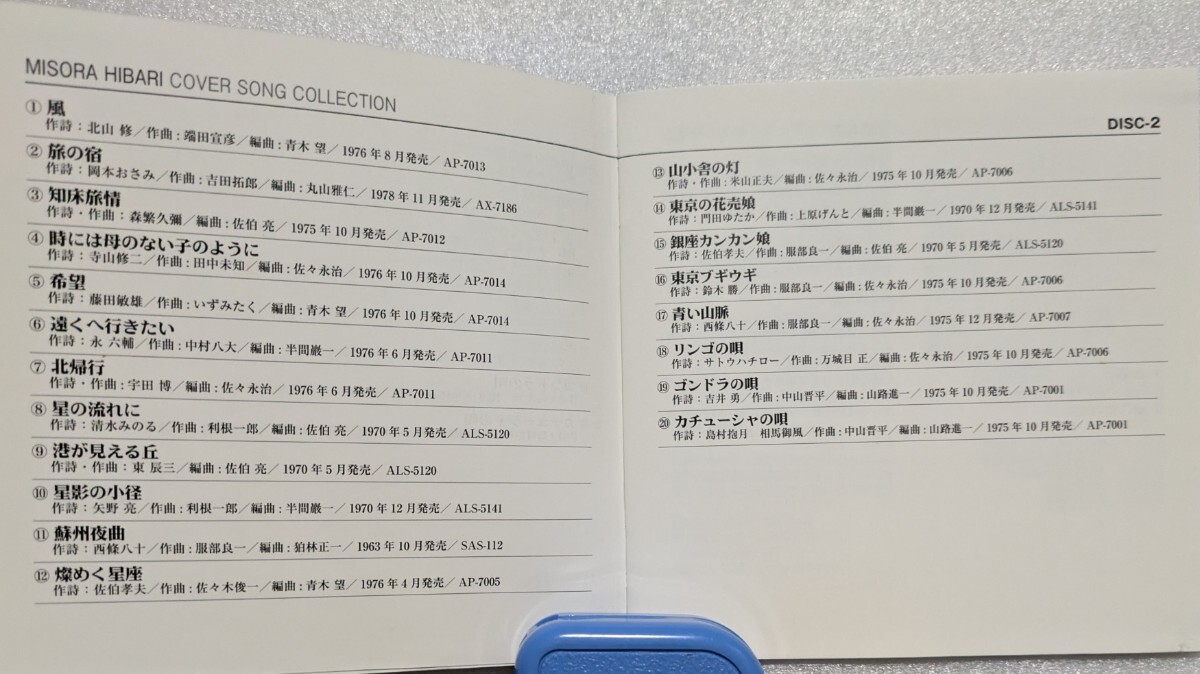 MISORA HIBARI COVER SONG COLLECTION
① 風
作詩：北山 修／作曲：端田宣彦／編曲：青木 望／1976年8月発売／AP-7013
② 旅の宿
作詩：岡本おさみ／作曲：吉田拓郎／編曲：丸山雅仁／1978年11月発売／AX-7186
③ 知床旅情
作詩・作曲：森繁久彌／編曲：佐伯 亮／1975年10月発売／AP-7012
④ 時には母のない子のように
作詩：寺山修二／作曲：田中未知／編曲：佐々永治／1976年10月発売／AP-7014
⑤ 希望
作詩：藤田敏雄／作曲：いずみたく／編曲：青木 望／1976年10月発売／AP-7014
⑥ 遠くへ行きたい
作詩：永 六輔／作曲：中村八大／編曲：半間巌一／1976年6月発売／AP-7011
⑦ 北帰行
作詩・作曲：宇田 博／編曲：佐々永治／1976年6月発売／AP-7011
⑧ 星の流れに
作詩：清水みのる／作曲：利根一郎／編曲：佐伯 亮／1970年5月発売／ALS-5120
⑨ 港が見える丘
作詩・作曲：東 辰三／編曲：佐伯 亮／1970年5月発売／ALS-5120
⑩ 星影の小径
作詩：矢野 亮／作曲：利根一郎／編曲：半間巌一／1970年12月発売／ALS-5141
⑪ 蘇州夜曲
作詩：西條八十／作曲：服部良一／編曲：狛林正一／1963年10月発売／SAS-112
⑫ 燦めく星座
作詩：佐伯孝夫／作曲：佐々木俊一／編曲：青木 望／1976年4月発売／AP-7005
DISC-2
⑬ 山小舎の灯
作詩・作曲：米山正夫／編曲：佐々永治／1975年10月発売／AP-7006
⑭ 東京の花売娘
作詩：門田ゆたか／作曲：上原げんと／編曲：半間巌一／1970年12月発売／ALS-5141
⑮ 銀座カンカン娘
作詩：佐伯孝夫／作曲：服部良一／編曲：佐伯 亮／1970年5月発売／ALS-5120
⑯ 東京ブギウギ
作詩：鈴木 勝／作曲：服部良一／編曲：佐々永治／1975年10月発売／AP-7006
⑰ 青い山脈
作詩：西條八十／作曲：服部良一／編曲：佐々永治／1975年12月発売／AP-7007
⑱ リンゴの唄
作詩：サトウハチロー／作曲：万城目 正／編曲：佐々永治／1975年10月発売／AP-7006
⑲ ゴンドラの唄
作詩：吉井 勇／作曲：中山晋平／編曲：山路進一／1975年10月発売／AP-7001
⑳ カチューシャの唄
作詩：島村抱月 相馬御風／作曲：中山晋平／編曲：山路進一／1975年10月発売／AP-7001